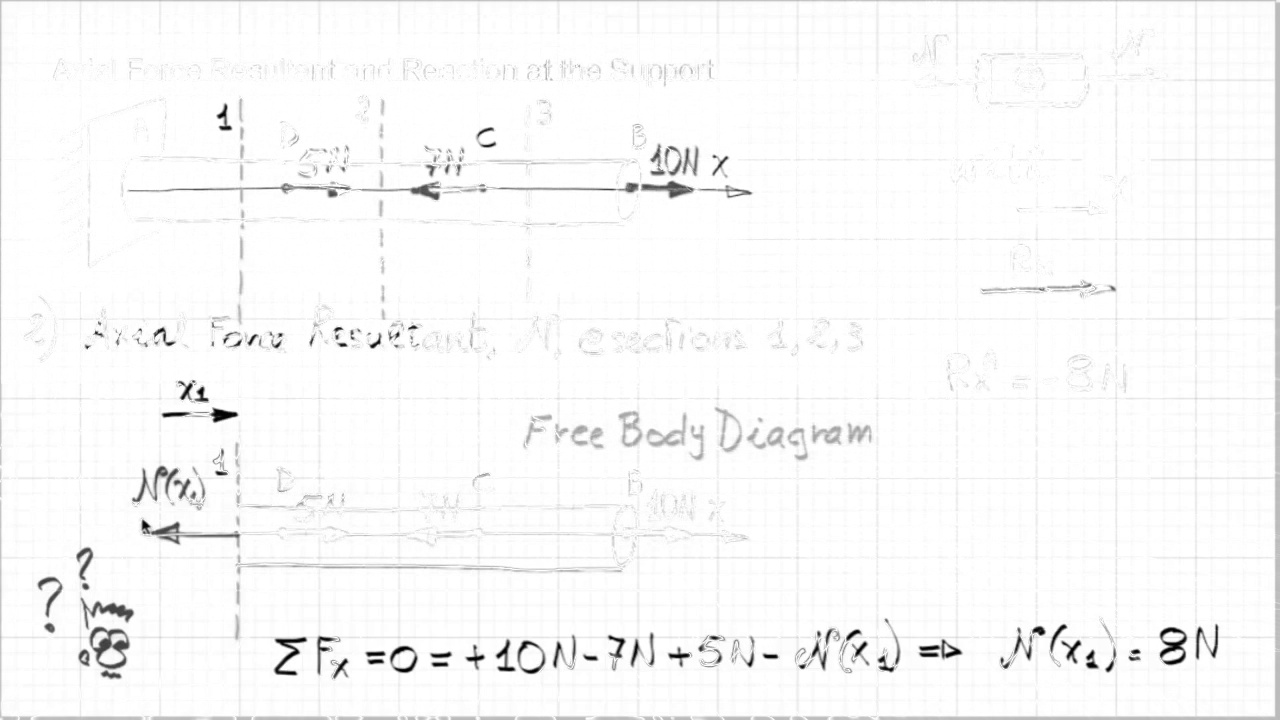 Axial Force Resultant and Reaction at the Support
N N
1 2 3
A D 5N 7N C B 10N x
with x
Rx
2) Axial Force Resultant, N, @sections 1, 2, 3
RxA = -8N
x1
Free Body Diagram
N(x1) 1 D 5N 7N C B 10N x
? ?
ΣFx = 0 = +10N - 7N + 5N - N(x1) => N(x1) = 8N